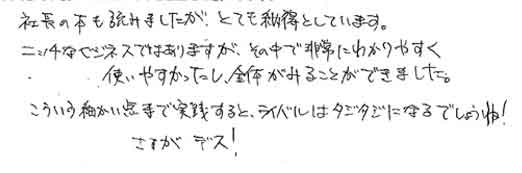 社長の本も読みましたが、とても納得としています。
ニッチなビジネスではありますが、その中で非常にわかりやすく
使いやすかったし、全体がみることができました。
こういう細かい点まで実践すると、ライバルはタジタジになるでしょうね!
さすが デス!